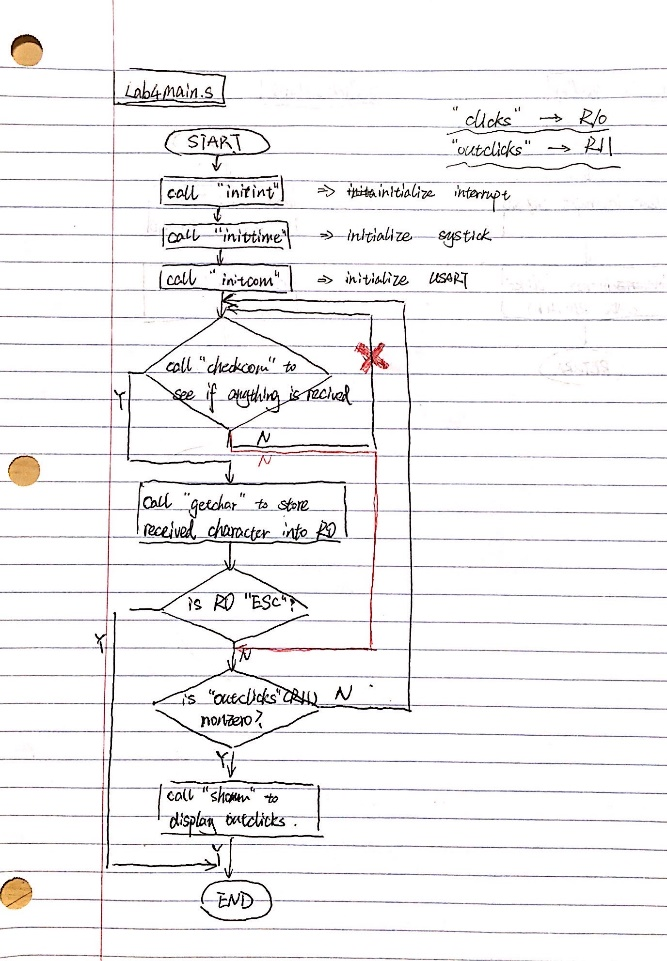 Lab4main.s
"clicks" → R10
"outclicks" → R11
START
call "initint" ⇒ initialize interrupt
call "inittime" ⇒ initialize systick
call "initcom" ⇒ initialize USART
call "checkcom" to
see if anything is recived
Y
N
N
call "getchar" to store
received character into R0
is R0 "ESC"?
Y
N
is "outclicks" (R11)
nonzero?
N
Y
call to
display outclicks.
Y
END